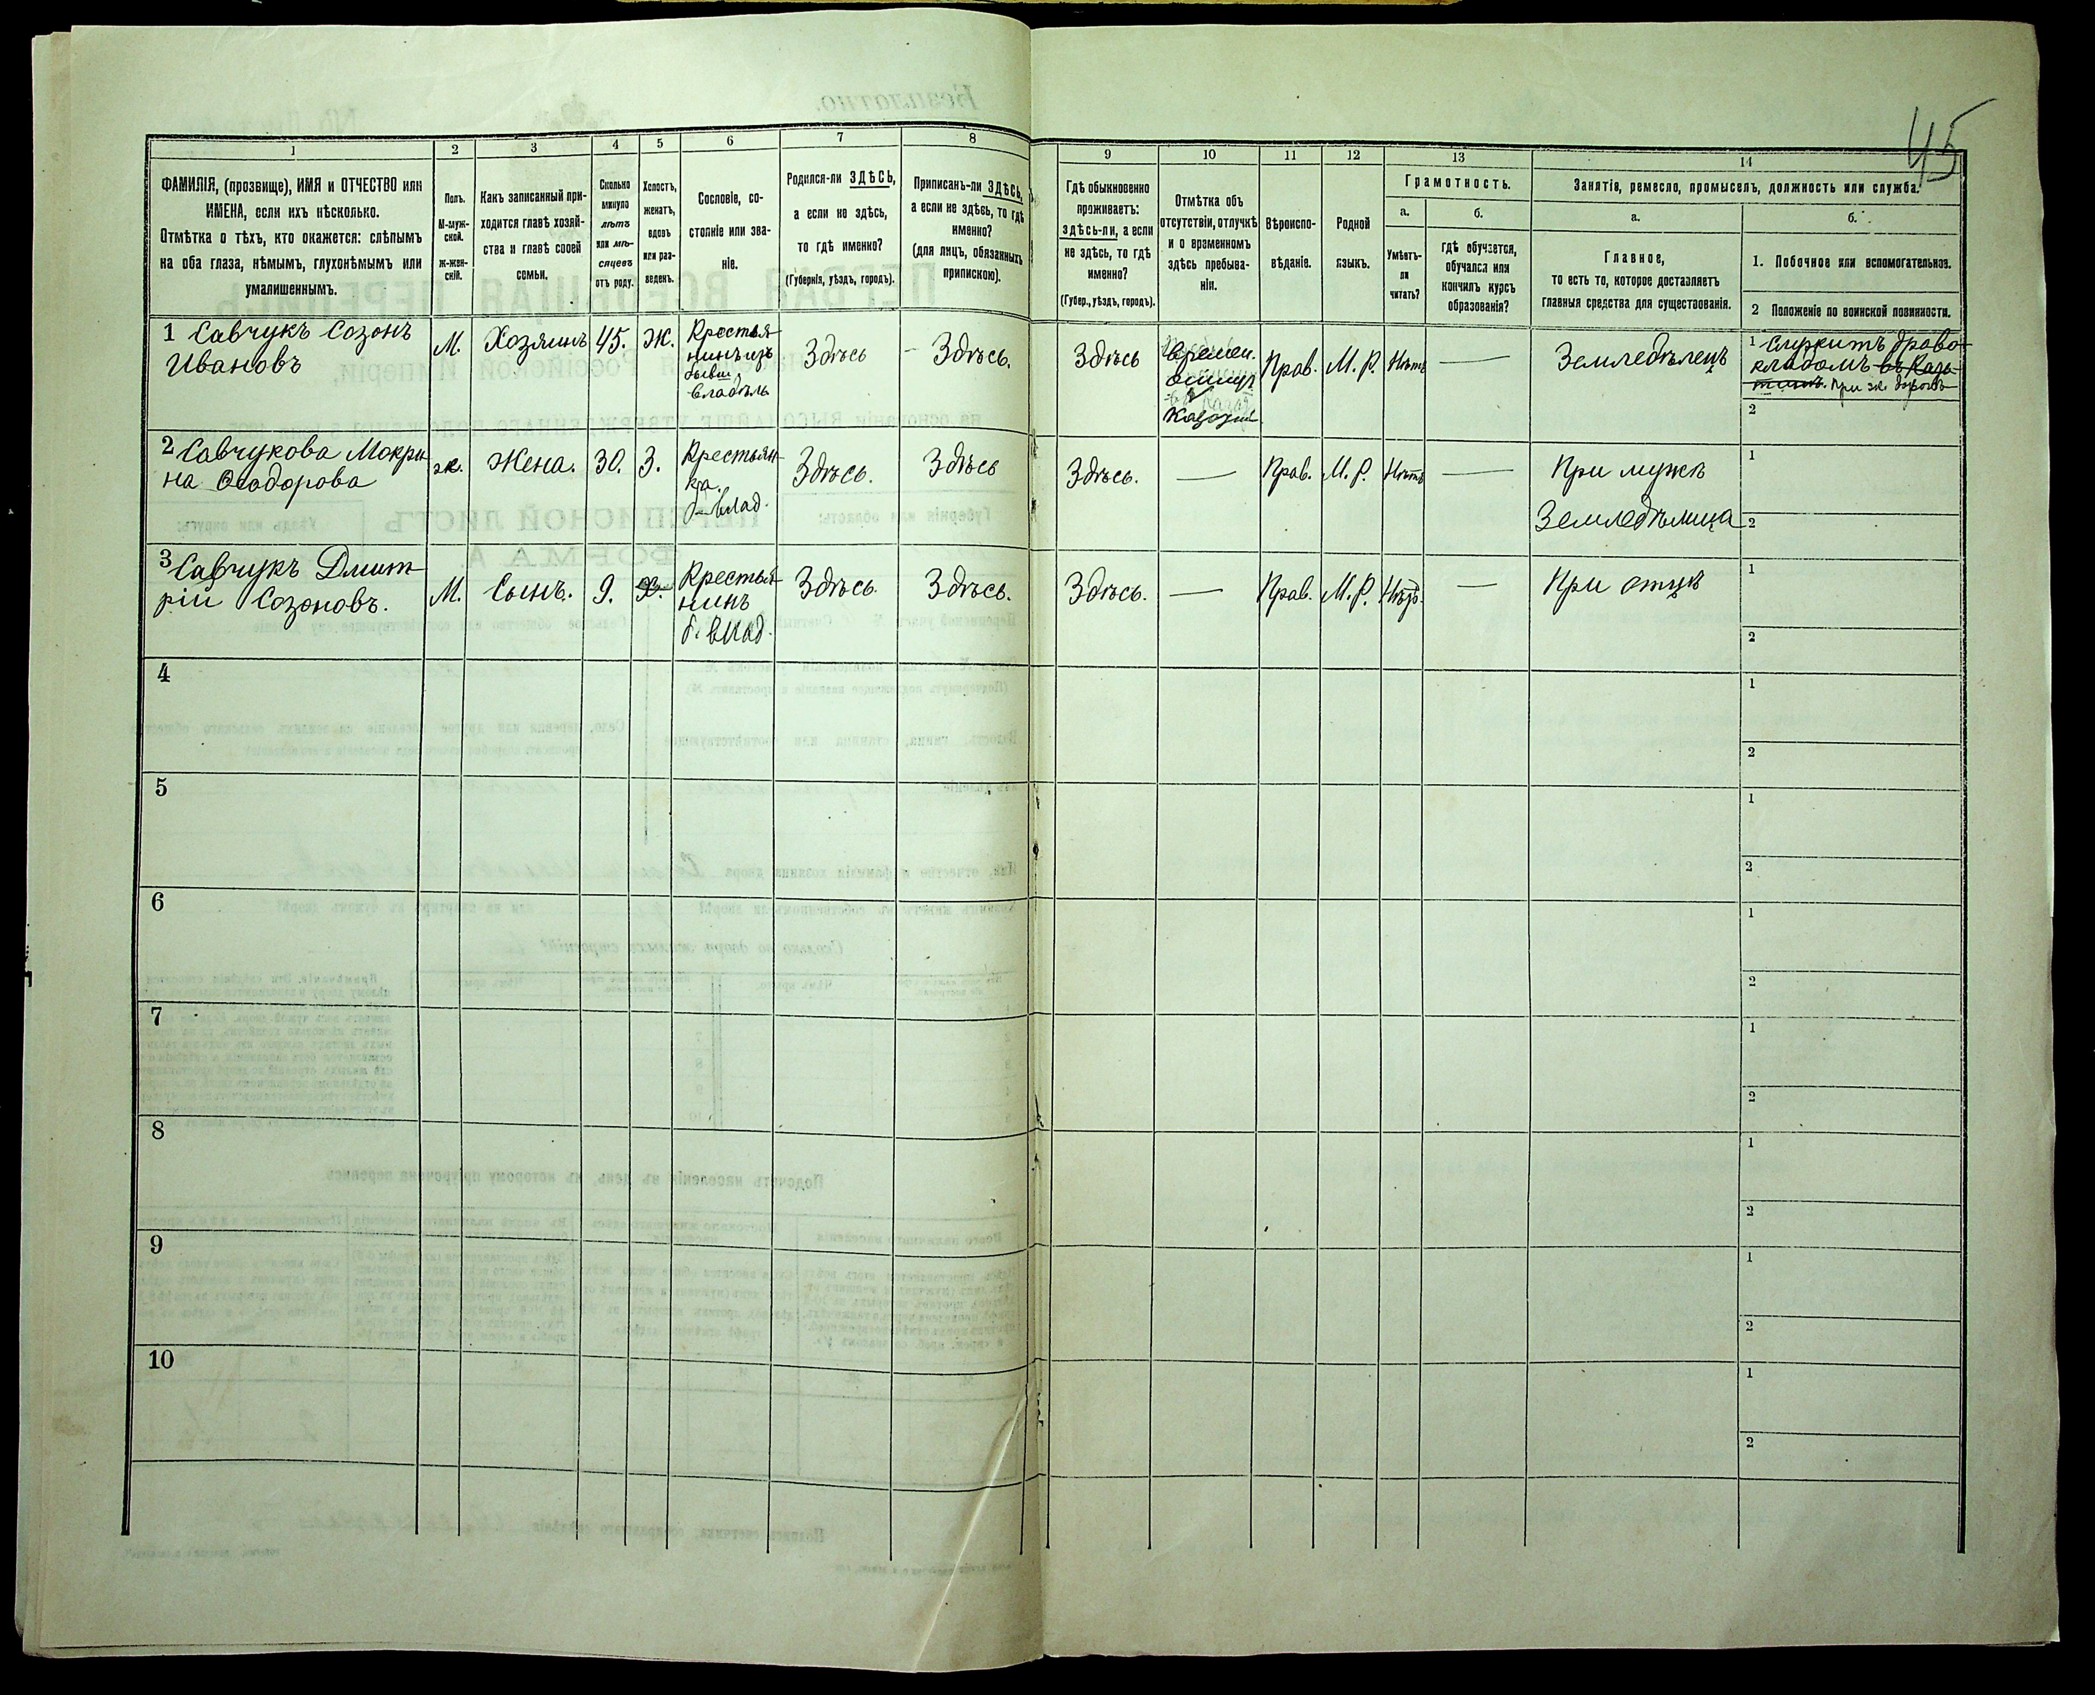 45
1
2
3
4
5
6
7
8
9
10
11
12
13
14
ФАМИЛІЯ, (прозвище), ИМЯ и ОТЧЕСТВО или
ИМЕНА, если ихъ нѣсколько.
Отмѣтка о тѣхъ, кто окажется: слѣпымъ
на оба глаза, нѣмымъ, глухонѣмымъ или
умалишеннымъ.
Полъ.
М-муж-
ской.
Ж-жен-
скій.
Какъ записанный при-
ходится главѣ хозяй-
ства и главѣ своей
семьи.
Сколько
минуло
лѣтъ
или мѣ-
сяцевъ
отъ роду.
Холостъ,
женатъ,
вдовъ
или раз-
веденъ.
Сословіе, со-
стояніе или зва-
ніе.
Родился-ли ЗДѢСЬ,
а если не здѣсь,
то гдѣ именно?
(Губернія, уѣздъ, городъ).
Приписанъ-ли ЗДѢСЬ,
а если не здѣсь, то гдѣ
именно?
(для лицъ, обязанныхъ
припискою).
Гдѣ обыкновенно
проживаетъ:
здѣсь-ли, а если
не здѣсь, то гдѣ
именно?
(Губер., уѣздъ, городъ).
Отмѣтка объ
отсутствіи, отлучкѣ
и о временномъ
здѣсь пребыва-
ніи.
Вѣроиспо-
вѣданіе.
Родной
языкъ.
Грамотность.
а.
Умѣетъ-
ли
читать?
б.
гдѣ обучается,
обучался или
кончилъ курсъ
образованія?
Занятіе, ремесло, промыселъ, должность или служба.
а.
Главное,
то есть то, которое доставляетъ
главныя средства для существованія.
б.
1. Побочное или вспомогательное.
2 Положеніе по воинской повинности.
1 Савчукъ Созонъ
Ивановъ
М.
Хозяинъ
45.
Ж.
Крестья-
нинъ изъ
бывш.
владѣль
Здѣсь
Здѣсь.
Здѣсь
Времен.
Прав.
М. Р.
Нѣтъ
—
Земледѣлецъ
1 Служитъ дрово-
кладомъ
при ж. дорогѣ
2
2 Савчукова Мокри-
на Ѳеодорова
ж.
Жена.
30.
З.
Крестьян-
ка.
б. влад.
Здѣсь.
Здѣсь
Здѣсь.
—
Прав.
М. Р.
Нѣтъ
—
При мужѣ
Земледѣлица
1
2
3 Савчукъ Дмит-
рій Созоновъ.
М.
Сынъ.
9.
Х.
Крестья-
нинъ
б. влад.
Здѣсь.
Здѣсь.
Здѣсь.
—
Прав.
М. Р.
Нѣтъ.
—
При отцѣ
1
2
4
1
2
5
1
2
6
1
2
7
1
2
8
1
2
9
1
2
10
1
2